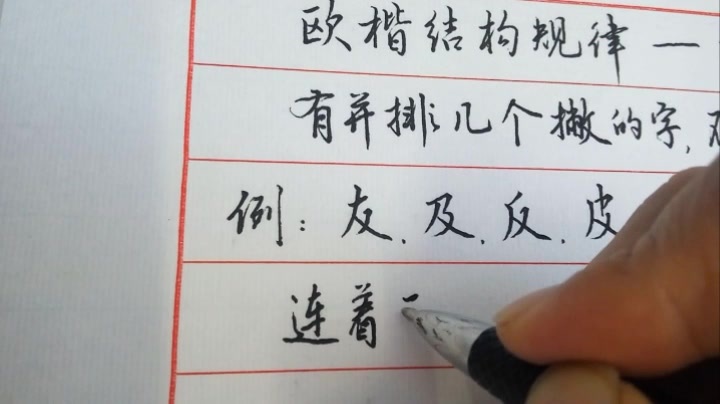 欧楷结构规律一
有并排几个撇的字,
例:友、及、反、皮
连着